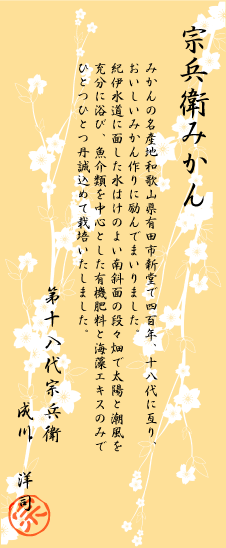 宗兵衛みかん
みかんの名産地和歌山県有田市新堂で四百年、十八代に亘り、
おいしいみかん作りに励んでまいりました。
紀伊水道に面した水はけのよい南斜面の段々畑で太陽と潮風を
充分に浴び、魚介類を中心とした有機肥料と海藻エキスのみで
ひとつひとつ丹誠込めて栽培いたしました。
第十八代宗兵衛
成川 洋司